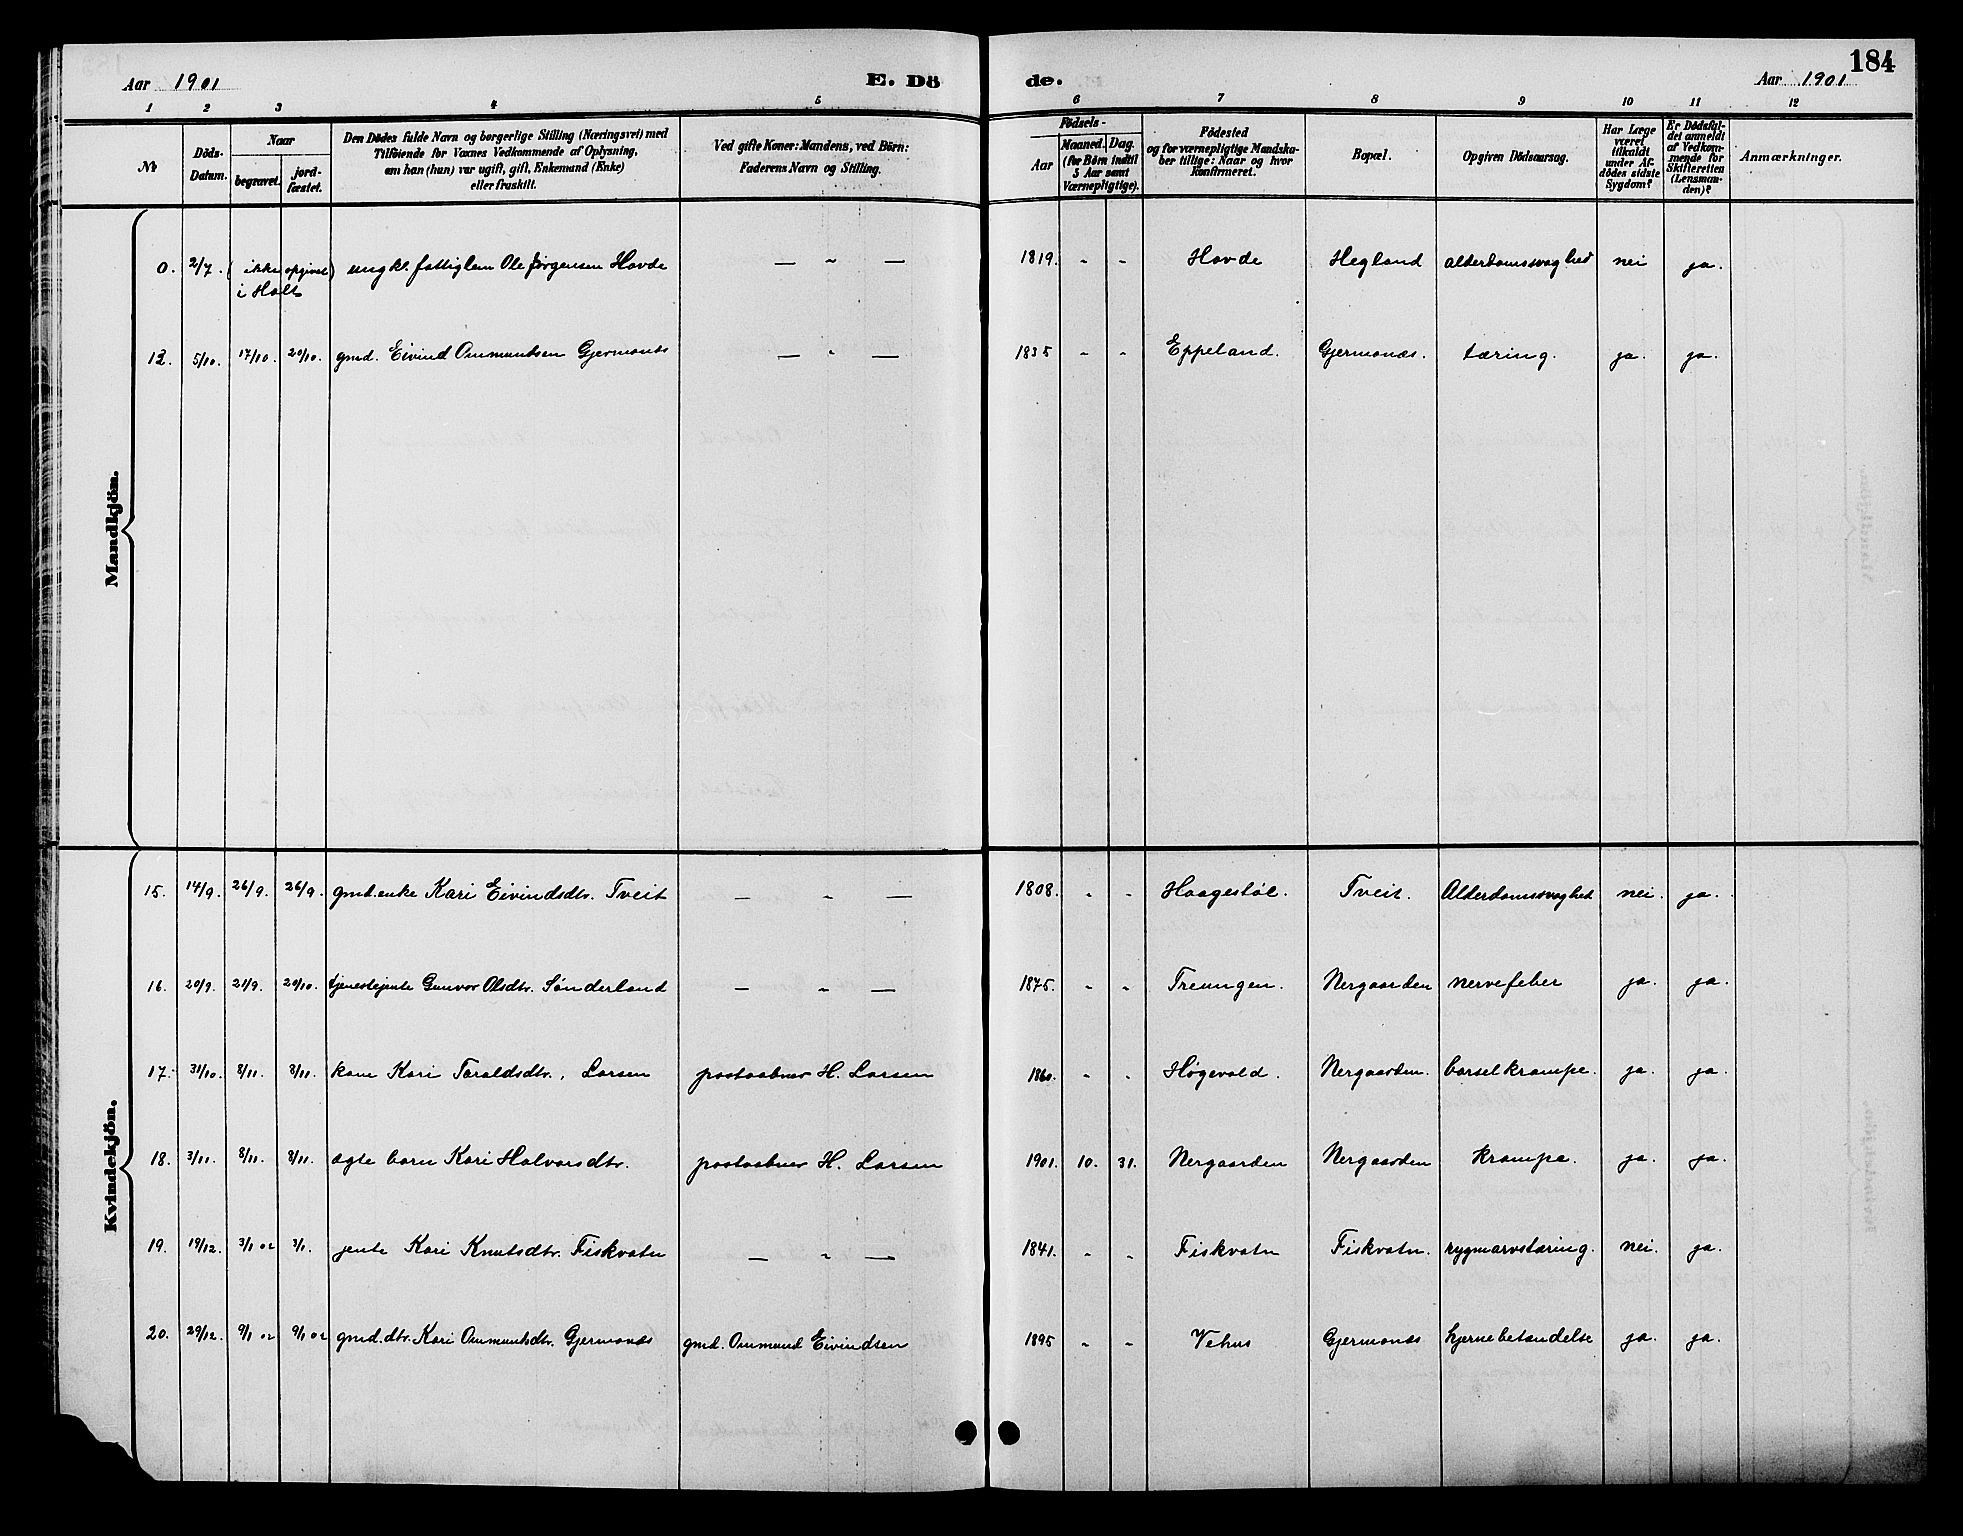 184
Aar 1901 E. Dö de. Aar 1901
1 2 3 4 5 6 7 8 9 10 11 12
№
Döds-Datum.
Naar
begravet.
jord-fæstet.
Den Dödes fulde Navn og borgerlige Stilling (Næringsvei) med
Tilföiende for Voxnes Vedkommende af Oplysning,
om han (hun) var ugift, gift, Enkemand (Enke)
eller fraskilt.
Ved gifte Koner: Mandens, ved Börn:
Faderens Navn og Stilling.
Födsels-
Aar
Maaned. Dag.
(for Börn indtil
5 Aar samt
Værnepligtige).
Födested
og for værnepligtige Mandska-
ber tillige: Naar og hvor
konfirmeret.
Bopæl.
Opgiven Dödsaarsag.
Har Læge
været
tilkaldt
under Af-
dödes sidste
Sygdom?
Er Dödsfal-
det anmeldt
af Vedkom-
mende for
Skifteretten
(Lensman-
den)?
Anmærkninger.
Mandkjön.
0. 2/7. (ikke opgivet) ungk. fattiglem Ole Jørgensen Hovde — " — 1819. - - Hovde Hegland alderdomssvaghed nei ja.
i Holt
12. 5/10. 17/10. 20/10. gmd. Eivind Ommundsen Gjermonæs — " — 1835 - - Eppeland. Gjermonæs. tæring. ja. ja.
Kvindekjön.
15. 14/9. 26/9. 26/9. gmd.enke Kari Eivindsdtr. Tveit — " — 1808. - - Haagestøl. Tveit. Alderdomssvaghed nei. ja.
16. 20/9. 21/9. 20/10. tjenestejente Gunvor Olsdtr. Sønderland — " — 1875. - - Treungen. Nergaarden nervefeber ja. ja.
17. 31/10. 8/11. 8/11. kone Kari Taraldsdtr. Larsen postaabner H. Larsen 1860. - - Høgevold. Nergaarden. barselkrampe. ja. ja.
18. 3/11. 8/11. 8/11. ægte barn Kari Halvorsdtr. postaabner H. Larsen 1901. 10. 31. Nergaarden Nergaarden krampe. ja. ja.
19. 19/12. 3/1 02 3/1. jente Kari Knutsdtr. Fiskvatn — " — 1841. - - Fiskvatn Fiskvatn. rygmarvstæring. nei. ja.
20. 29/12. 9/1 02 9/1 02 gmd.dtr. Kari Ommundsdtr. Gjermonæs gmd. Ommund Eivindsen 1895 - - Vehus Gjermonæs hjernebetændelse ja. ja.